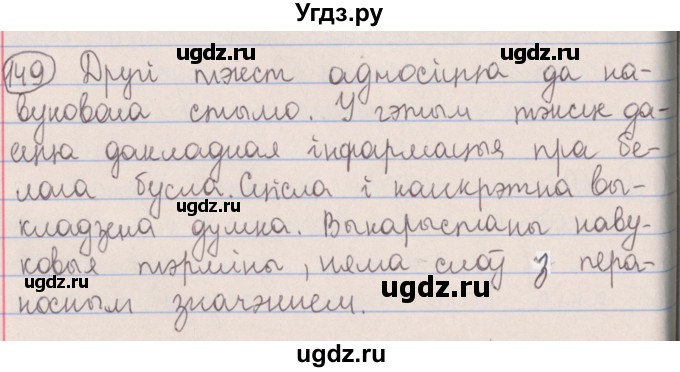 Угдз.ру
149 Другі тэкст адносіцца да на-
вуковага стылю. У гэтым тэксце да-
ецца дакладная інфармацыя пра бе-
лага бусла. Сцісла і канкрэтна вы-
кладзена думка. Выкарыстаны наву-
ковыя тэрміны, няма слоў з пера-
носным значэннем.
ugdz.ru
ugdz.ru
ugdz.ru
ugdz.ru
ugdz.ru
ugdz.ru
ugdz.ru
ugdz.ru